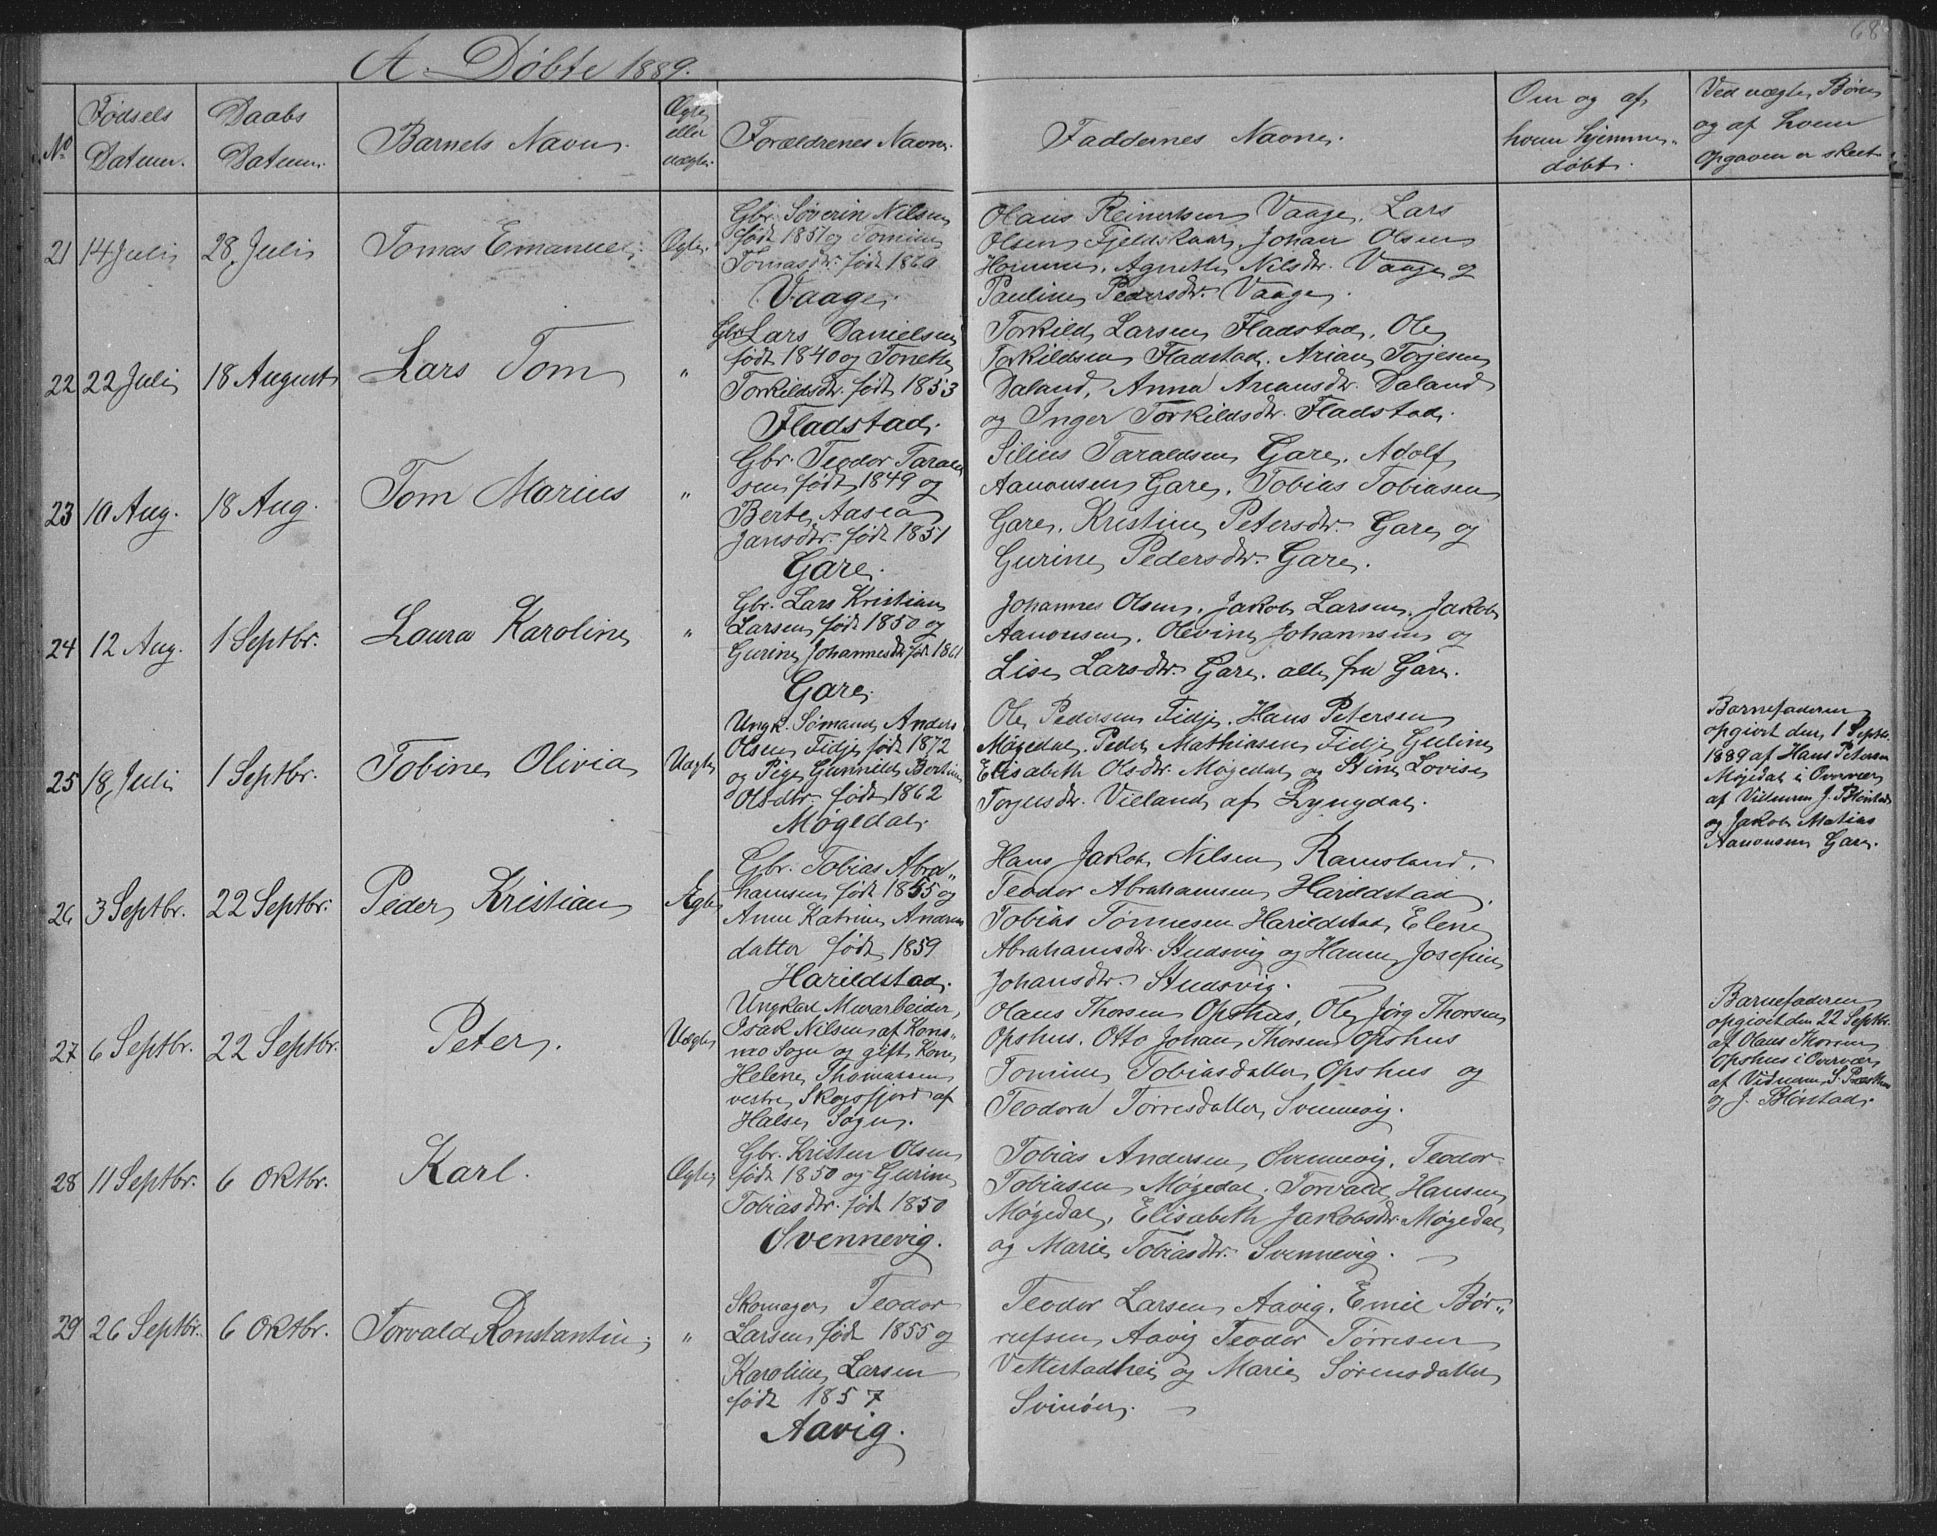 68
A. Døbte 1889.
No
Fødsels
Datum.
Daabs
Datum.
Barnets Navn.
Ægte
eller
uægte.
Forældrenes Navne.
Faddernes Navne.
Om og af
hvem hjemme-
døbt.
Ved uægte Børn
og af hvem
Opgaven er skeet.
21 14 Juli 28 Juli Tomas Emanuel. Ægte.
Gbr. Søverin Nilsen
født 1851 og Tomine
Tomasdtr. født 1860
Vaage.
Olaus Reinertsen Vaage, Lars
Olsen Fjeldskaar, Johan Olsen
Homme, Agnethe Nilsdtr. Vaage og
Pauline Pedersdtr. Vaage.
22 22 Juli 18 August Lars Tom "
Gbr. Lars Danielsen
født 1840 og Tonette
Torkildsdtr. født 1853
Fladstad.
Torkild Larsen Fladstad, Ole
Torkildsen Fladstad, Arian Torjesen
Daland, Anna Ariansdtr. Daland
og Inger Torkildsdtr. Fladstad.
23 10 Aug. 18 Aug. Tom Marius "
Gbr. Teodor Tarald
sen født 1849 og
Berte Aasea
Jansdtr. født 1851
Gare.
Silius Taraldsen Gare, Adolf
Aanonsen Gare, Tobias Tobiasen
Gare, Kristine Petersdtr. Gare og
Gurine Pedersdtr. Gare.
24 12 Aug. 1 Septbr. Laura Karoline "
Gbr. Lars Kristian
Larsen født 1850 og
Gurine Johannesdtr født 1861
Gare.
Johannes Olsen, Jakob Larsen, Jakob
Aanonsen, Olevine Johannsen og
Lise Larsdtr. Gare, alle fra Gare.
25 18 Juli 1 Septbr. Tobine Olivia Uægte
Ungk. Sømand Anders
Olsen Fidje født 1872
og Pige Gunnild Bertine
Olsdtr. født 1862
Møgedal.
Ole Pedersen Fidje, Hans Petersen
Møgedal, Peder Mathiasen Fidje, Guline
Elisabeth Olsdtr. Møgedal og Stine Lovise
Torjusdtr. Vieland af Lyngdal.
Barnefaderen
opgivet den 1 Septbr.
1889 af Hans Petersen
Møgedal i Overvær
af Vidneren J. Blørstad
og Jakob Matias
Aanonsen Gare.
26 3 Septbr. 22 Septbr. Peder Kristian Ægte
Gbr. Tobias Abra-
hamsen født 1855 og
Anne Katrine Anders
datter født 1859
Harildstad.
Hans Jakob Nilsen Ramsland,
Teodor Abrahamsen Harildstad,
Tobias Tønnesen Harildstad, Elene
Abrahamsdtr. Studsvig og Hanne Josefine
Johansdtr. Studsvig.
27 6 Septbr. 22 Septbr. Peter. Uægte
Ungkarl Murarbeider
Isak Nilsen af Kons-
mo Sogn og gift Kone
Helene Thomassen
vestre Skogsfjord af
Halse Sogn.
Olaus Thorsen Opshus, Ole Jørg Thorsen
Opshus, Otto Johan Thorsen Opshus
Tomine Tobiasdatter Opshus og
Teodora Tørresdatter Svennevig.
Barnefaderen
opgivet den 22 Septbr.
af Olaus Thorsen
Opshus i Overvær
af Vidnerne S. Præsthus
og J. Blørstad.
28 11 Septbr. 6 Oktbr. Karl. Ægte
Gbr. Kristen Olsen
født 1850 og Gurine
Tobiasdtr. født 1850
Svennevig.
Tobias Andersen Svennevig, Teodor
Tobiasen Møgedal, Torvald Hansen
Møgedal, Elisabeth Jakobsdtr. Møgedal
og Marie Tobiasdtr. Svennevig.
29 26 Septbr. 6 Oktbr. Torvald Konstantin. "
Skomager Teodor
Larsen født 1855 og
Karoline Larsen
født 1857
Aavig.
Teodor Larsen Aavig, Emil Bør-
rufsen Aavig, Teodor Tørresen
Vetterstadhei og Marie Sørensdatter
Svinøer.